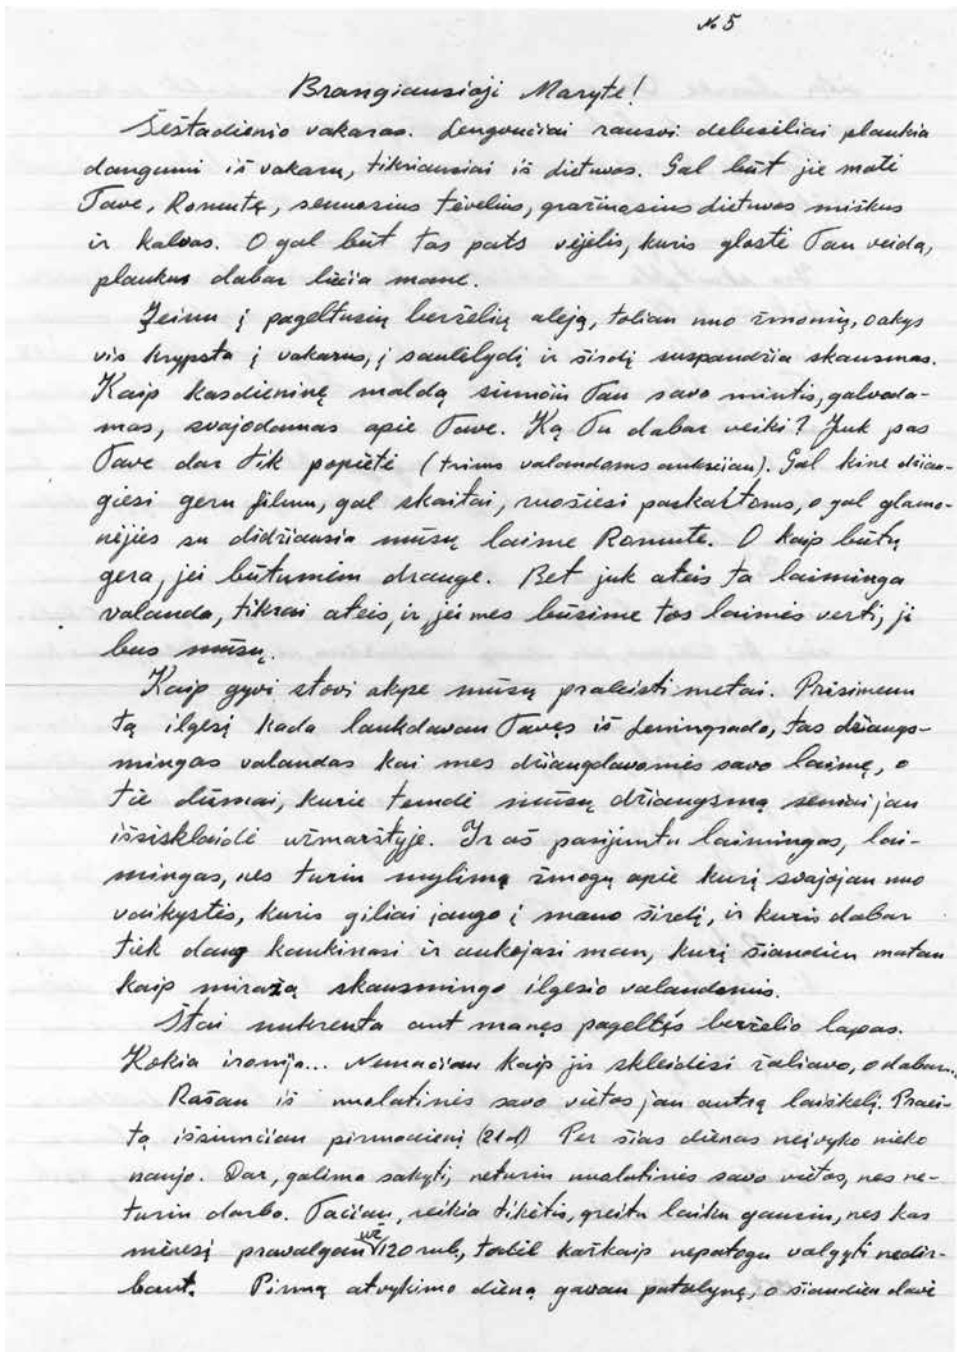 № 5
Brangiausioji Maryte!
Šeštadienio vakaras. Lengvučiai rausvi debesėliai plaukia
dangumi iš vakarų, tikriausiai iš Lietuvos. Gal būt jie matė
Tave, Romutę, senuosius tėvelius, gražiuosius Lietuvos miškus
ir kalvas. O gal būt tas pats vėjelis, kuris glostė Tau veidą,
plaukus dabar liečia mane.
Įeinu į pageltusių berželių alėją, toliau nuo žmonių, o akys
vis krypsta į vakarus, į saulėlydį ir širdį suspaudžia skausmas.
Kaip kasdieninę maldą siunčiu Tau savo mintis, galvoda-
mas, svajodamas apie Tave. Ką Tu dabar veiki? Juk pas
Tave dar tik popietė (trimis valandoms anksčiau). Gal kine džiau-
giesi geru filmu, gal skaitai, ruošiesi paskaitoms, o gal glamo-
nėjies su didžiausia mūsų laime Romute. O kaip būtų
gera, jei būtumėm drauge. Bet juk ateis ta laiminga
valanda, tikrai ateis, ir jei mes būsime tos laimės verti, ji
bus mūsų.
Kaip gyvi stovi akyse mūsų praleisti metai. Prisimenu
tą ilgesį kada laukdavau Tavęs iš Leningrado, tas džiaugs-
mingas valandas kai mes džiaugdavomės savo laime, o
tie dūmai, kurie temdė mūsų džiaugsmą seniai jau
išsisklaidė užmarštyje. Ir aš pasijuntu laimingas, lai-
mingas, nes turiu mylimą žmogų apie kurį svajojau nuo
vaikystės, kuris giliai įaugo į mano širdį, ir kuris dabar
tiek daug kankinasi ir aukojasi man, kurį šiandien matau
kaip miražą skausmingo ilgesio valandomis.
Štai nukrenta ant manęs pageltęs berželio lapas.
Kokia ironija... Nemačiau kaip jis skleidėsi žaliavo, o dabar...
Rašau iš nuolatinės savo vietos jau antrą laiškelį. Praei-
tą išsiunčiau pirmadienį (21d) Per šias dienas neįvyko nieko
naujo. Dar, galima sakyti, neturiu nuolatinės savo vietos, nes ne-
turiu darbo. Tačiau, reikia tikėtis, greitu laiku gausiu, nes kas
mėnesį pravalgau už 120 rub, todėl kažkaip nepatogu valgyti nedir-
bant. Pirmą atvykimo dieną gavau patalynę, o šiandien davė